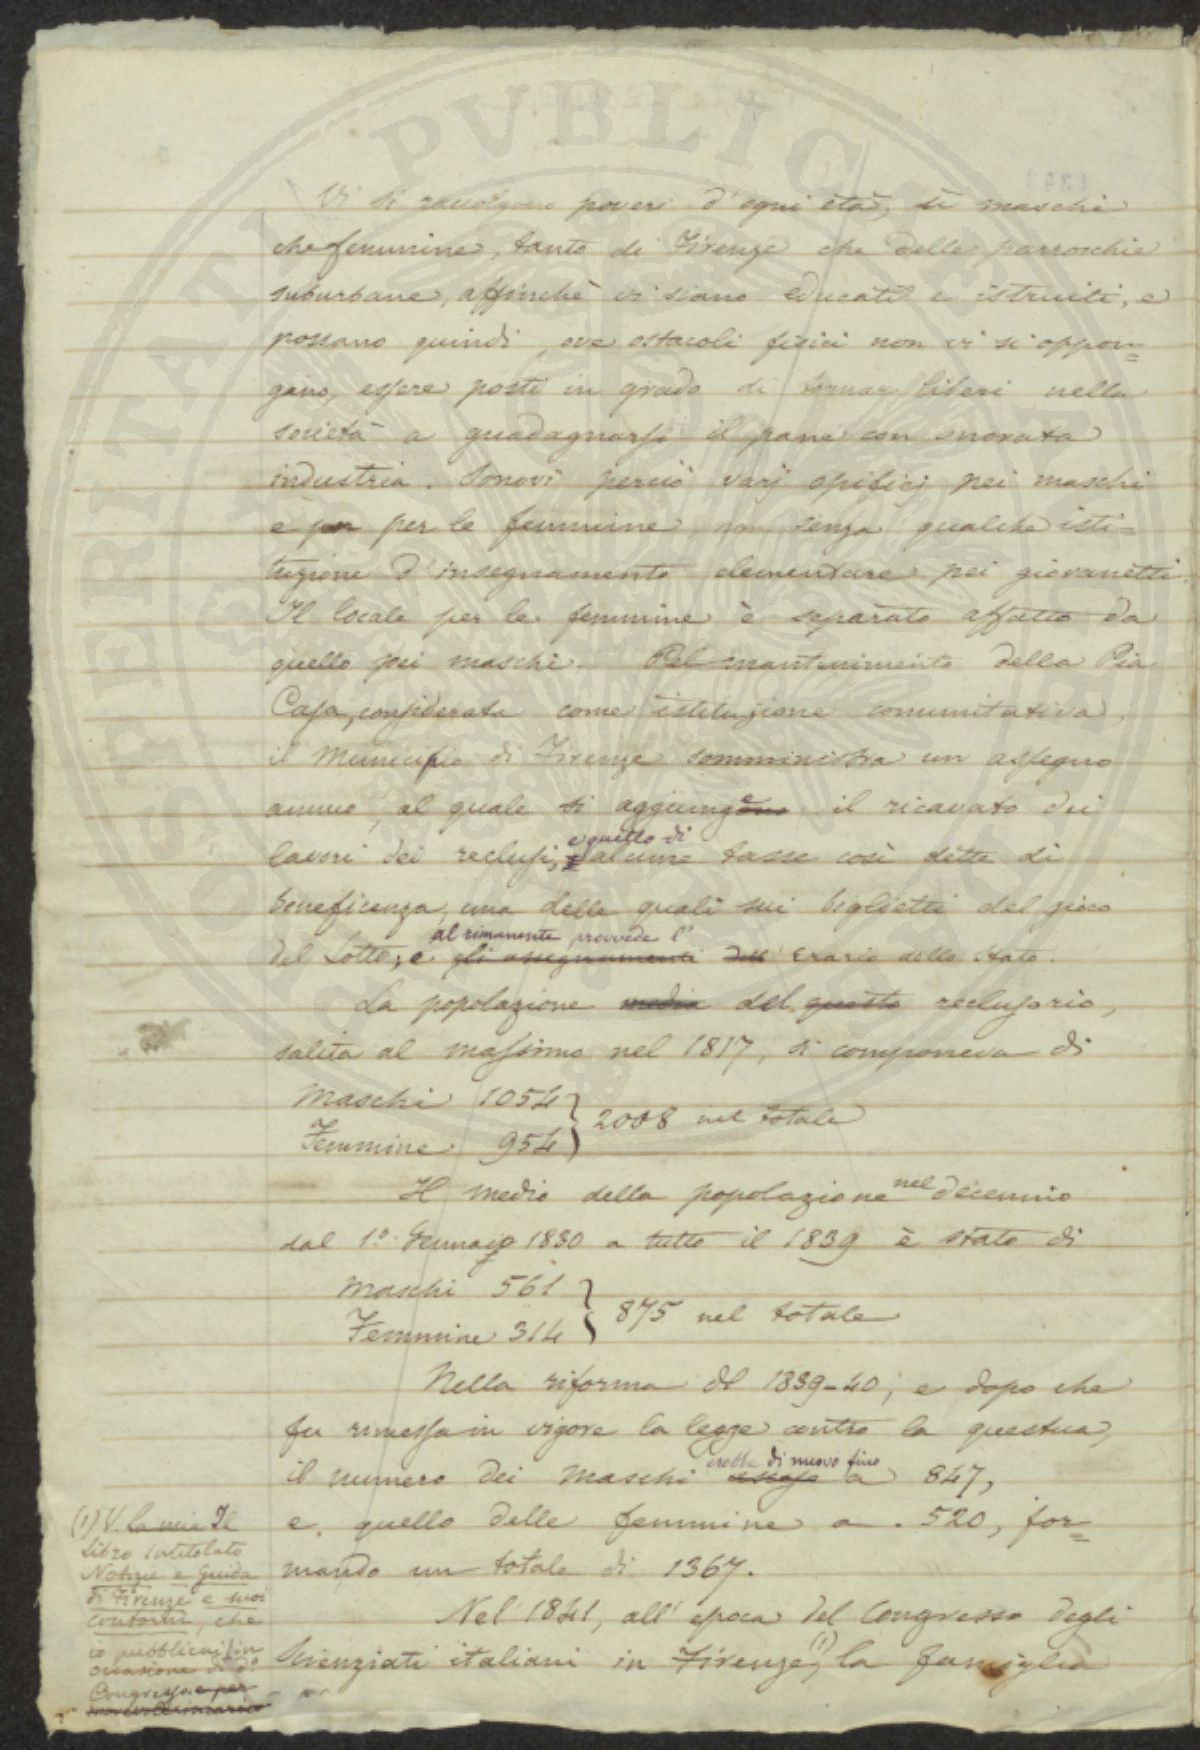 Vi si raccolgono poveri d'ogni età, sì maschi
che femmine, tanto di Firenze che delle parrocchie
suburbane, affinchè vi siano educati e istruiti, e
possano quindi, ove ostacoli fisici non vi si oppon=
gano, essere posti in grado di tornar liberi nella
società a guadagnarsi il pane con onorata
industria. Sonovi perciò varj opificj pei maschi
e per per le femmine, non senza qualche isti=
tuzione d'insegnamento elementare pei giovanetti.
Il locale per le femmine è separato affatto da
quello pei maschi. Pel mantenimento della Pia
Casa, considerata come istituzione comunitativa,
il Municipio di Firenze somministra un assegno
annuo, al quale si aggiunge il ricavato dei
lavori dei reclusi, e quello di alcune tasse così dette di
beneficenza, una delle quali sui biglietti del gioco
al rimanente provvede l'
del Lotto; e gli assegnamenti dell' Erario dello Stato.
La popolazione media del questo reclusorio,
salita al massimo nel 1817, si componeva di
Maschi 1054
Femmine 954 } 2008 nel totale
Il medio della popolazione nel decennio
dal 1º Gennajo 1830 a tutto il 1839 è stato di
Maschi 561
Femmine 314 } 875 nel totale
Nella riforma del 1839-40, e dopo che
fu rimessa in vigore la legge contro la questua,
crebbe di nuovo fino
il numero dei Maschi a 847,
e quello delle femmine a 520, for=
mando un totale di 1367.
Nel 1841, all'epoca del Congresso degli
Scienziati italiani in Firenze,(1) la famiglia
(1) V. la mia Il
Libro intitolato
Notizie e Guida
di Firenze e suoi
contorni, che
io pubblicai in
occasione di dº
Congresso e per
SOSPERITATI PUBLICAE AU